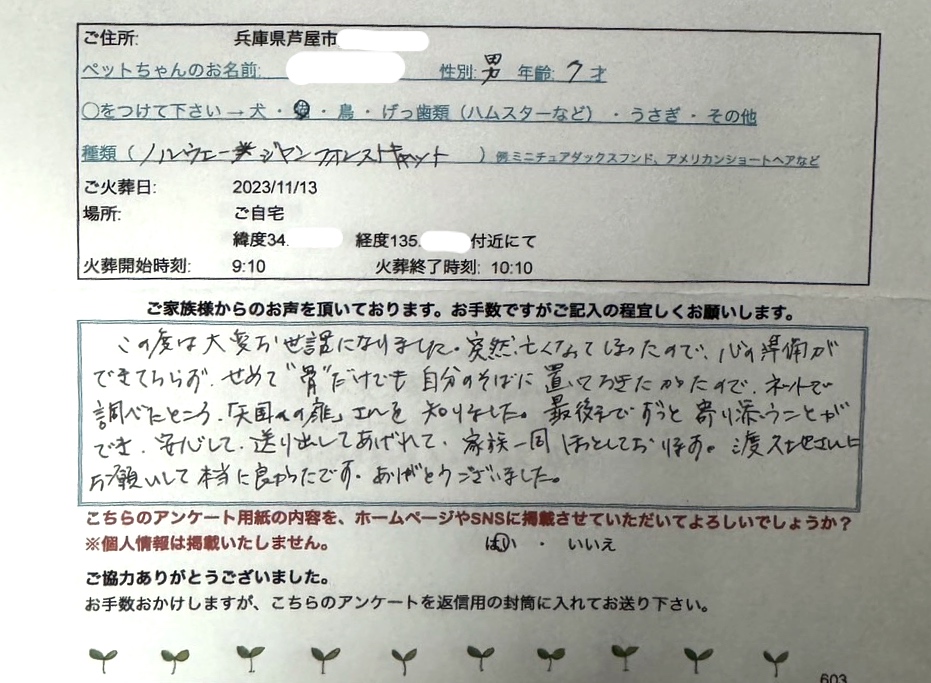 ご住所: 兵庫県芦屋市
ペットちゃんのお名前: 性別: 男 年齢: 7才
○をつけて下さい→犬・猫・鳥・げっ歯類（ハムスターなど）・うさぎ・その他
種類（ノルウェージャンフォレストキャット）例 ミニチュアダックスフンド、アメリカンショートヘアなど
ご火葬日: 2023/11/13
場所: ご自宅
緯度34. 経度135. 付近にて
火葬開始時刻: 9:10 火葬終了時刻: 10:10
ご家族様からのお声を頂いております。お手数ですがご記入の程宜しくお願いします。
この度は大変お世話になりました。突然、亡くなってしまったので、心の準備が
できておらず、せめて"骨"だけでも自分のそばに置いておきたかったので、ネットで
調べたところ、「天国への扉」さんを知りました。最後までずっと寄り添うことが
でき、安心して、送り出してあげれて、家族一同ほっとしております。
お願いして本当に良かったです。ありがとうございました。
こちらのアンケート用紙の内容を、ホームページやSNSに掲載させていただいてよろしいでしょうか？
※個人情報は掲載いたしません。 はい ・ いいえ
ご協力ありがとうございました。
お手数おかけしますが、こちらのアンケートを返信用の封筒に入れてお送り下さい。
603